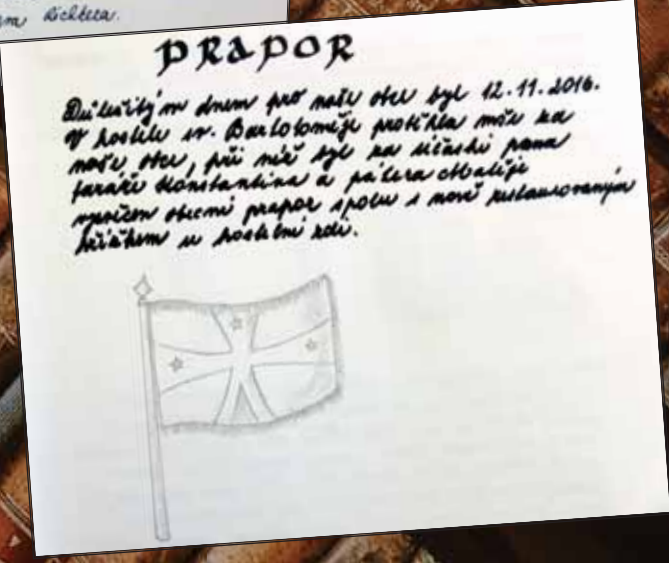 em Richtera.
PRAPOR
Důležitým dnem pro naši obec byl 12.11.2016.
V kostele sv. Bartoloměje proběhla mše za
naši obec, při níž byl za účasti pana
faráře Konstantina a pátera Matěje
vysvěcen obecní prapor spolu s nově restaurovaným
křížkem u kostelní zdi.